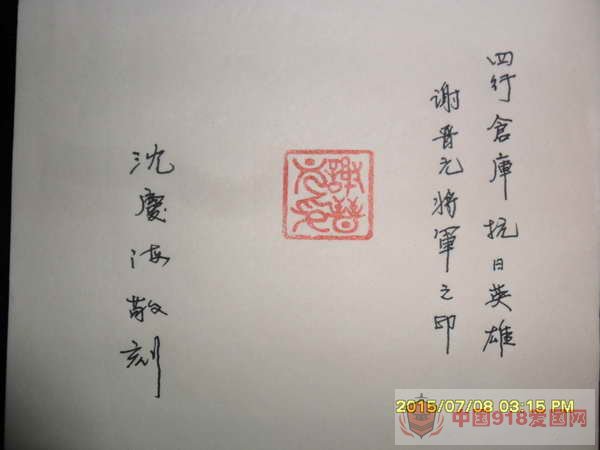 四行倉庫抗日英雄
谢晋元将軍之印
謝晉元印
沈慶海敬刻
2015/07/08 03:15 PM
中国918爱国网